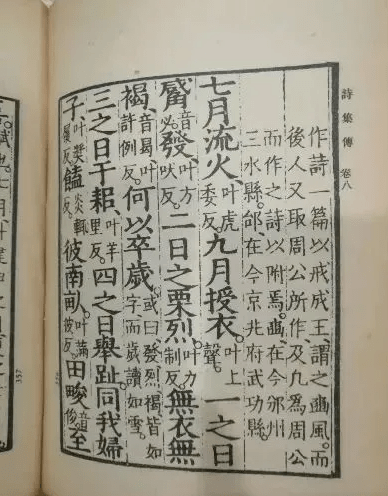 詩集傳 卷八
作詩一篇以戒成王謂之豳風。而
後人又取周公所作及凡為周公
而作之詩以附焉。豳、在今邠州
三水縣。邰、在今京兆府武功縣。
七月流火、叶虎委反。九月授衣。叶上聲。一之日
觱音必發、叶方吠反。二日之栗烈。叶力制反。無衣無
褐、音曷、叶許例反。何以卒歲。或曰發烈褐皆如字而歲讀如雪。
三之日于耜、叶羊里反。四之日舉趾。同我婦
子、叶獎履反。饁炎輒反。彼南畝。叶滿彼反。田畯音俊至